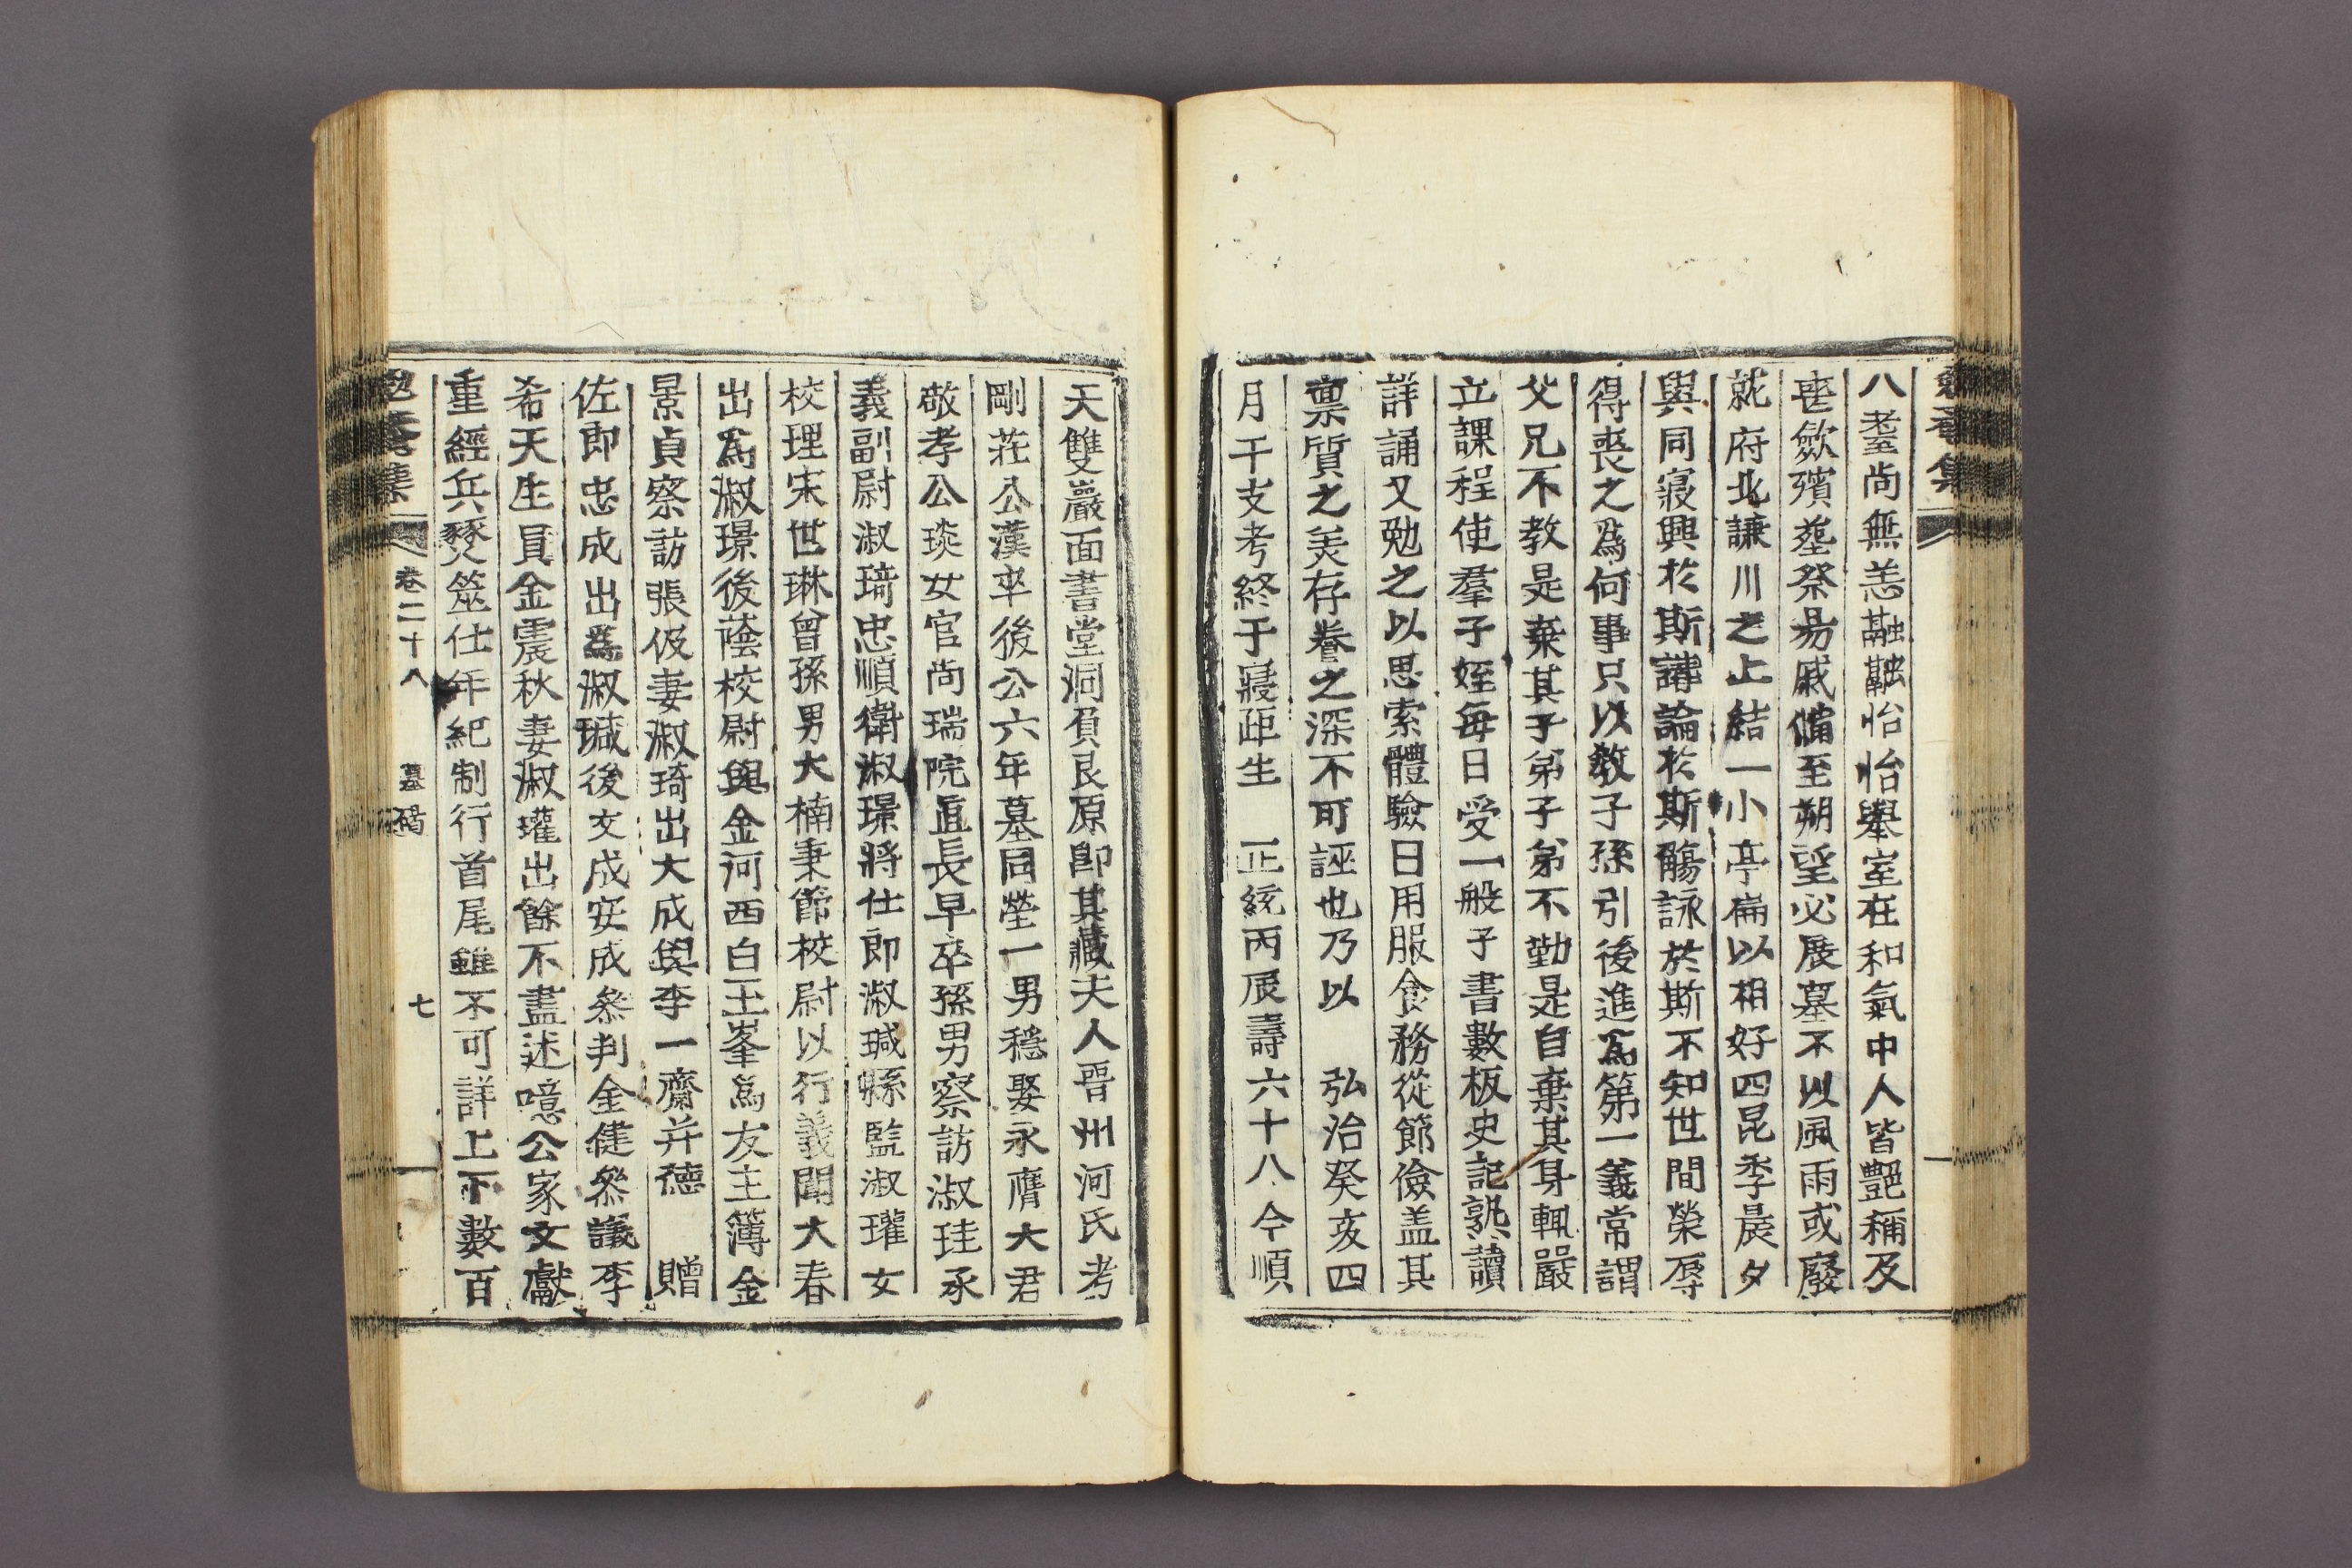 八耋尚無恙融融怡怡擧室在和氣中人皆艶稱及
喪斂殯塟祭昜戚備至朔望必展墓不以風雨或廢
就府北謙川之上結一小亭扁以相好四昆季晨夕
與同寢興於斯講論於斯觴詠於斯不知世間榮辱
得喪之爲何事只以敎子孫引後進爲第一義常謂
父兄不教是棄其子弟子弟不勤是自棄其身輒嚴
立課程使羣子姪每日受一般子書數板史記熟讀
詳誦又勉之以思索體驗日用服食務從節儉盖其
禀質之美存養之深不可誣也乃以 弘治癸亥四
月干支考終于寢距生 正統丙辰壽六十八今順
天雙巖面書堂洞負艮原卽其藏夫人晋州河氏考
剛莊公漢卒後公六年墓同塋一男穩娶永膺大君
敬孝公琰女官尚瑞院直長早卒孫男察訪淑珪承
義副尉淑琦忠順衛淑璟將仕郎淑瑊縣監淑瓘女
校理宋世琳曾孫男大楠秉節校尉以行義聞大春
出爲淑璟後蔭校尉與金河西白玉峯爲友主簿金
景貞察訪張伋妻淑琦出大成與李一齋并德 贈
佐郎忠成出爲淑瑊後文成安成叅判金健叅議李
希天生員金震秋妻淑瓘出餘不盡述噫公家文獻
重經兵燹筮仕年紀制行首尾雖不可詳上下數百
勉菴集 卷二十八 墓碣 七